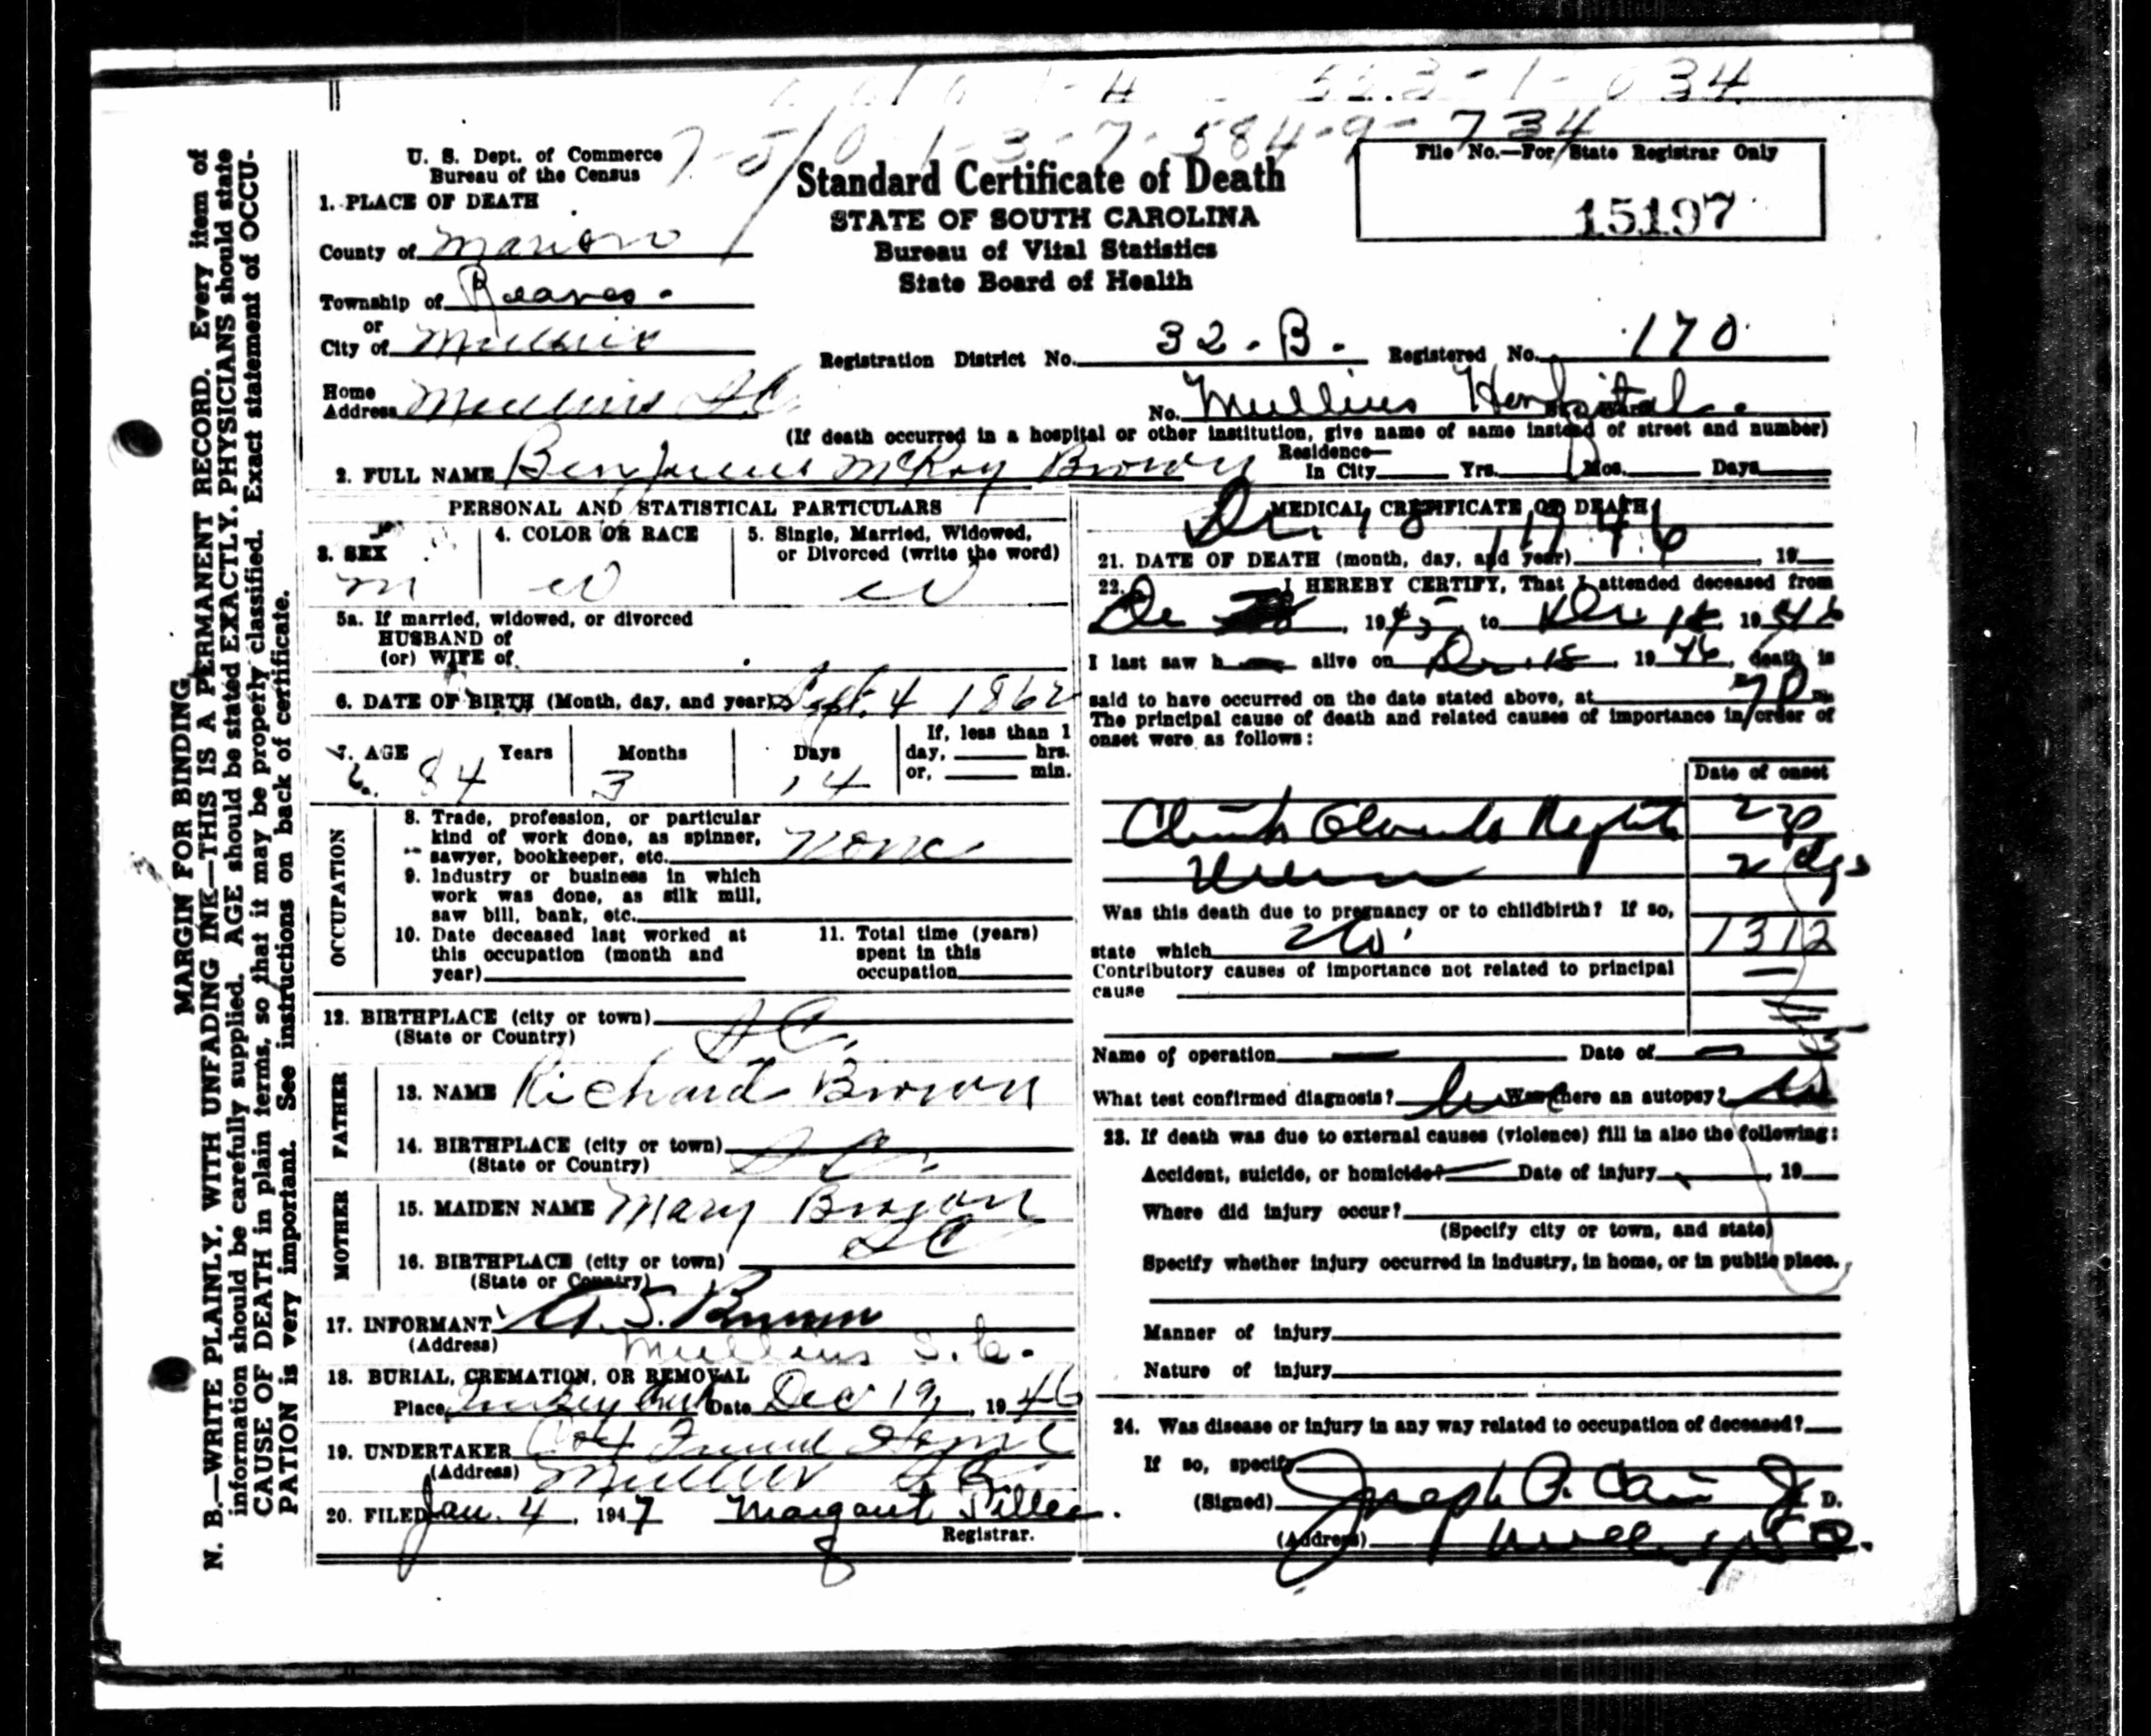 534
7-5/0 1-3-7-584-9-734
U. S. Dept. of Commerce
Bureau of the Census
Standard Certificate of Death
STATE OF SOUTH CAROLINA
Bureau of Vital Statistics
State Board of Health
File No.—For State Registrar Only
15197
1. PLACE OF DEATH
County of Marion
Township of Reaves.
or
City of Mullins
Registration District No. 32-B. Registered No. 170
Home
Address Mullins S.C.
No. Mullins Hospital.
(If death occurred in a hospital or other institution, give name of same instead of street and number)
2. FULL NAME Benjamin McKoy Brown
Residence—
In City Yrs. Mos. Days
PERSONAL AND STATISTICAL PARTICULARS
3. SEX
m
4. COLOR OR RACE
W
5. Single, Married, Widowed,
or Divorced (write the word)
W
5a. If married, widowed, or divorced
HUSBAND of
(or) WIFE of
6. DATE OF BIRTH (Month, day, and year) Sept. 4 1862
7. AGE Years Months Days
84 3 14
If, less than 1
day, hrs.
or, min.
OCCUPATION
8. Trade, profession, or particular
kind of work done, as spinner,
sawyer, bookkeeper, etc. None
9. Industry or business in which
work was done, as silk mill,
saw bill, bank, etc.
10. Date deceased last worked at
this occupation (month and
year)
11. Total time (years)
spent in this
occupation
12. BIRTHPLACE (city or town)
(State or Country) S.C.
FATHER
13. NAME Richard Brown
14. BIRTHPLACE (city or town)
(State or Country) S C.
MOTHER
15. MAIDEN NAME Mary
16. BIRTHPLACE (city or town) SC
(State or Country)
17. INFORMANT A.S. Brown
(Address) Mullins S.C.
18. BURIAL, CREMATION, OR REMOVAL
Place Date Dec 19, 1946
19. UNDERTAKER Cox Funeral Home
(Address) Mullins S.C.
20. FILED Jan. 4, 1947 Margaret
Registrar.
MEDICAL CERTIFICATE OF DEATH
Dec, 18 1946
21. DATE OF DEATH (month, day, and year) , 19
22. I HEREBY CERTIFY, That I attended deceased from
De , 1945, to Dec 18, 1946
I last saw h alive on Dec. 18, 1946, death is
said to have occurred on the date stated above, at 7P m
The principal cause of death and related causes of importance in order of
onset were as follows:
Date of onset
2 dys
Was this death due to pregnancy or to childbirth? If so,
state which No.
1312
Contributory causes of importance not related to principal
cause
Name of operation Date of
What test confirmed diagnosis? Was there an autopsy? No
23. If death was due to external causes (violence) fill in also the following:
Accident, suicide, or homicide? Date of injury , 19
Where did injury occur?
(Specify city or town, and state)
Specify whether injury occurred in industry, in home, or in public place.
Manner of injury
Nature of injury
24. Was disease or injury in any way related to occupation of deceased?
If so, specify
(Signed) Joseph P. Cain Jr. M. D.
(Address) Mullins, S.C.
MARGIN FOR BINDING
N. B.—WRITE PLAINLY, WITH UNFADING INK—THIS IS A PERMANENT RECORD. Every item of
information should be carefully supplied. AGE should be stated EXACTLY. PHYSICIANS should state
CAUSE OF DEATH in plain terms, so that it may be properly classified. Exact statement of OCCU-
PATION is very important. See instructions on back of certificate.